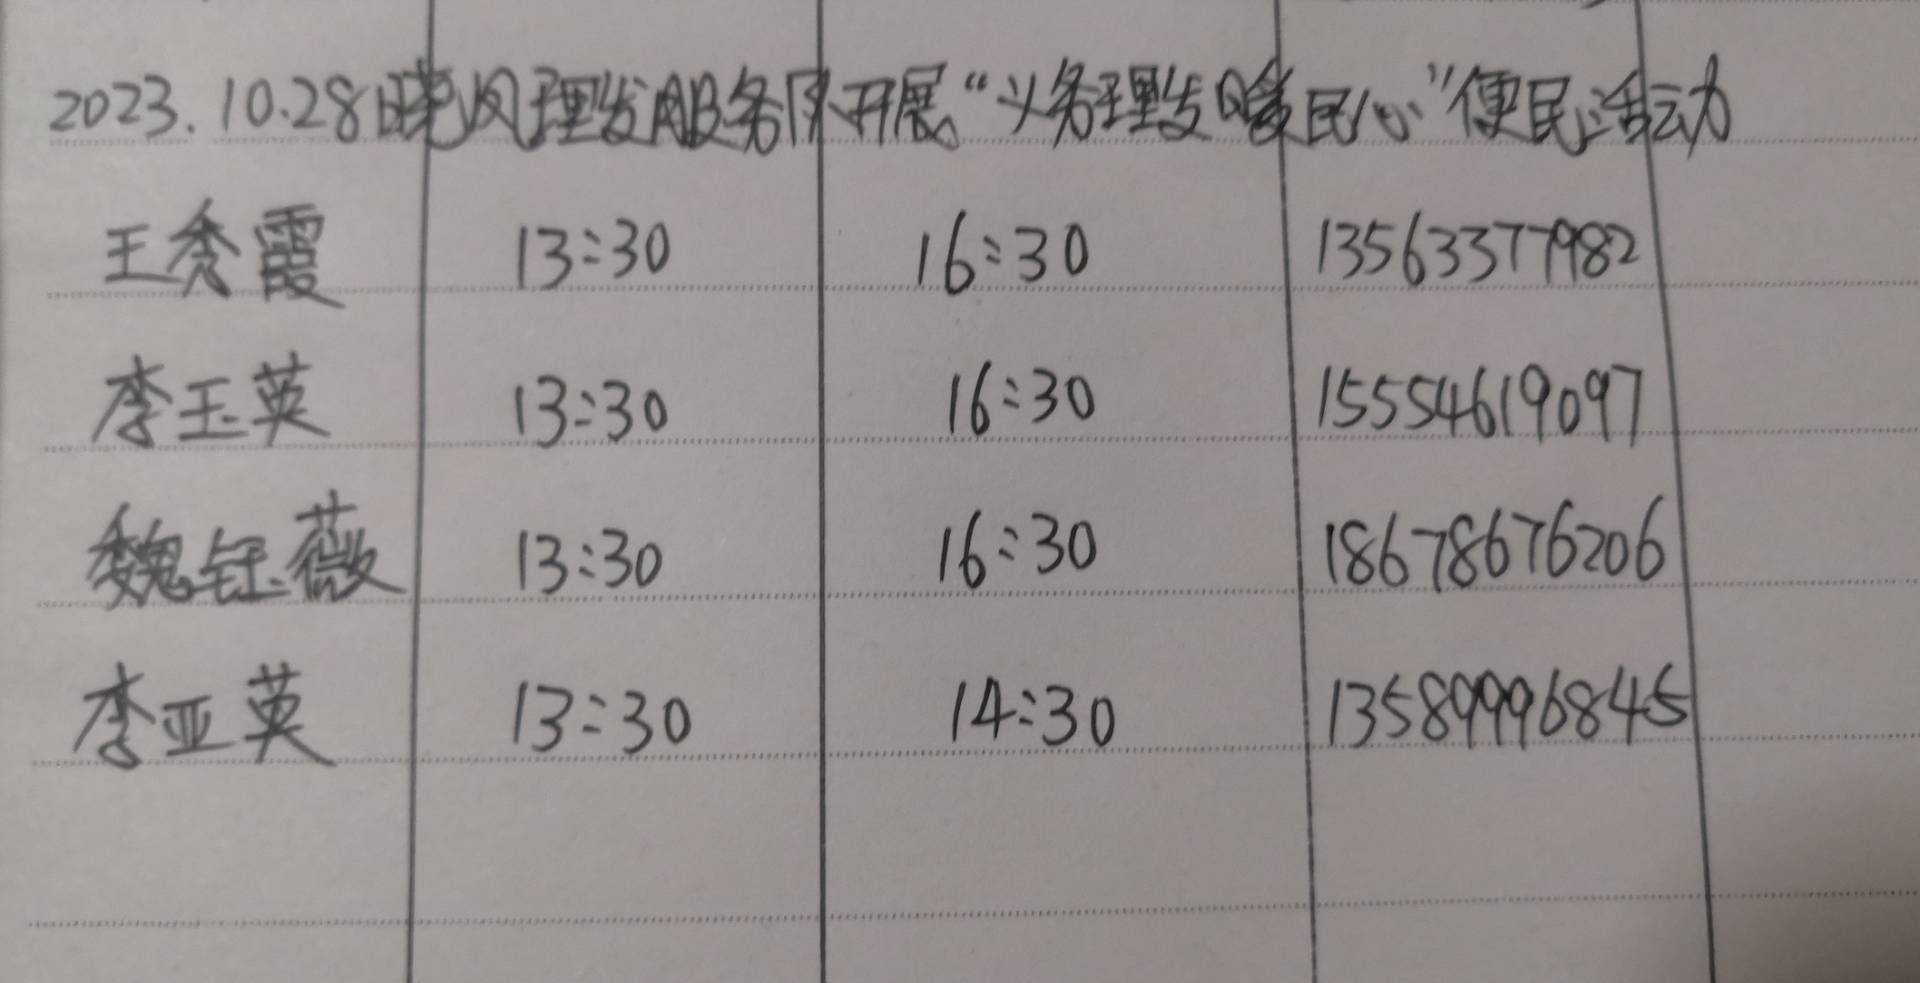 2023.10.28晓风理发服务队开展“义务理发暖民心”便民活动
王秀霞 13:30 16:30 13563377982
李玉英 13:30 16:30 15554619097
魏钰薇 13:30 16:30 18678676206
李亚英 13:30 14:30 13589996845